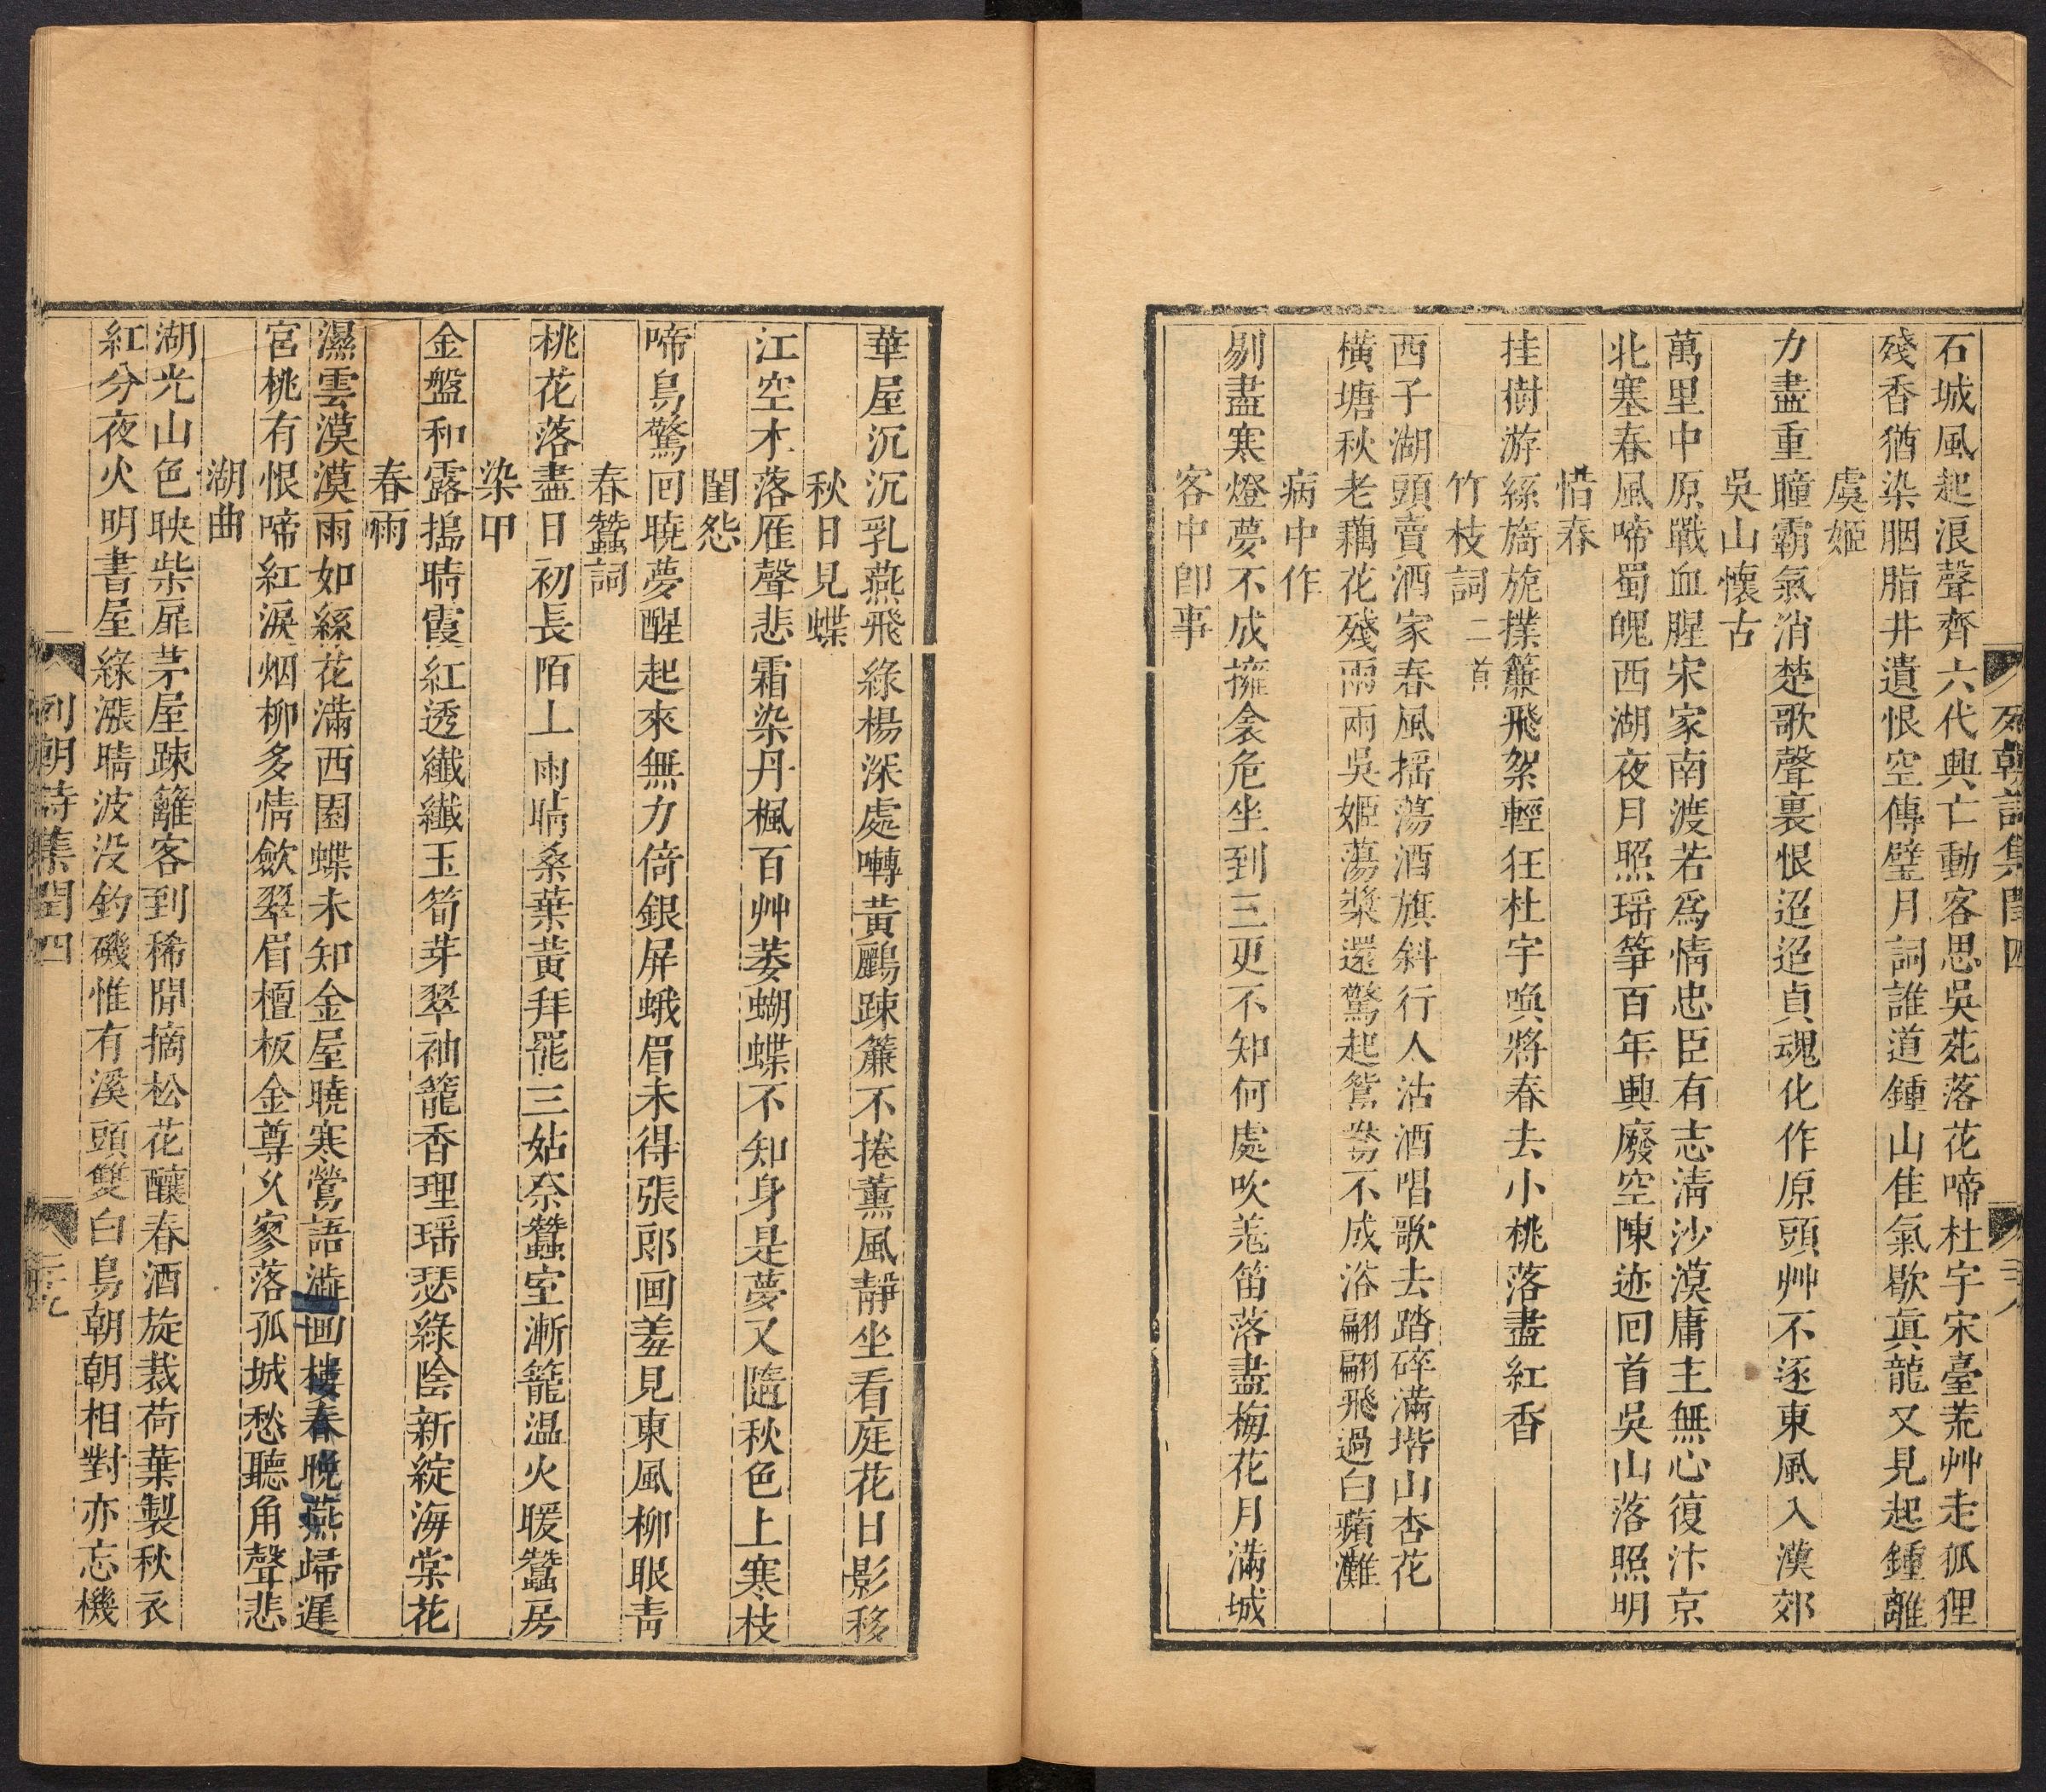 列朝詩集閏四
二十八
石城風起浪聲齊六代興亡動客思吳苑落花啼杜宇宋臺荒艸走狐狸
殘香猶染胭脂井遺恨空傳璧月詞誰道鍾山隹氣歇眞龍又見起鍾離
虞姬
力盡重瞳霸氣消楚歌聲裏恨迢迢貞魂化作原頭艸不逐東風入漢郊
吳山懷古
萬里中原戰血腥宋家南渡若爲情忠臣有志淸沙漠庸主無心復汴京
北塞春風啼蜀魄西湖夜月照瑶箏百年興廢空陳迹囘首吳山落照明
惜春
挂樹游絲旖旎撲簾飛絮輕狂杜宇喚將春去小桃落盡紅香
竹枝詞二首
西子湖頭賣酒家春風揺蕩酒旗斜行人沽酒唱歌去踏碎滿堦山杏花
橫塘秋老藕花殘兩兩吳姬蕩槳還驚起鴛鴦不成浴翩翩飛過白蘋灘
病中作
剔盡寒燈夢不成擁衾危坐到三更不知何處吹羌笛落盡梅花月滿城
客中卽事
華屋沉沉乳燕飛綠楊深處囀黃鸝踈簾不捲薰風靜坐看庭花日影移
秋日見蝶
江空木落雁聲悲霜染丹楓百艸萎蝴蝶不知身是夢又隨秋色上寒枝
閨怨
啼鳥驚回曉夢醒起來無力倚銀屏蛾眉未得張郎画羞見東風柳眼靑
春蠶詞
桃花落盡日初長陌上雨晴桑葉黃拜罷三姑祭蠶室漸籠温火暖蠶房
染甲
金盤和露搗晴霞紅透纖纖玉筍芽翠袖籠香理瑶瑟綠陰新綻海棠花
春雨
濕雲漠漠雨如絲花滿西園蝶未知金屋曉寒鶯語澁画樓春晚燕歸遲
宮桃有恨啼紅淚烟柳多情歛翠眉檀板金尊久寥落孤城愁聽角聲悲
湖曲
湖光山色映柴扉茅屋踈籬客到稀閒摘松花釀春酒旋裁荷葉製秋衣
紅分夜火明書屋綠漲晴波没釣磯惟有溪頭雙白鳥朝朝相對亦忘機
列朝詩集閏四
二十九